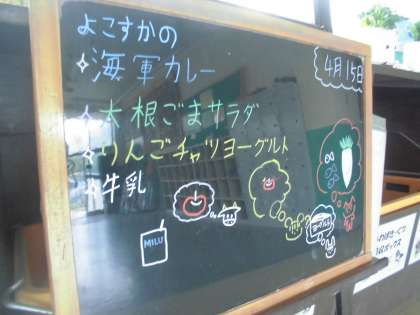 よこすかの
4月15日
海軍カレー
大根ごまサラダ
りんごチャツヨーグルト
牛乳
MILU
ヨーグルト